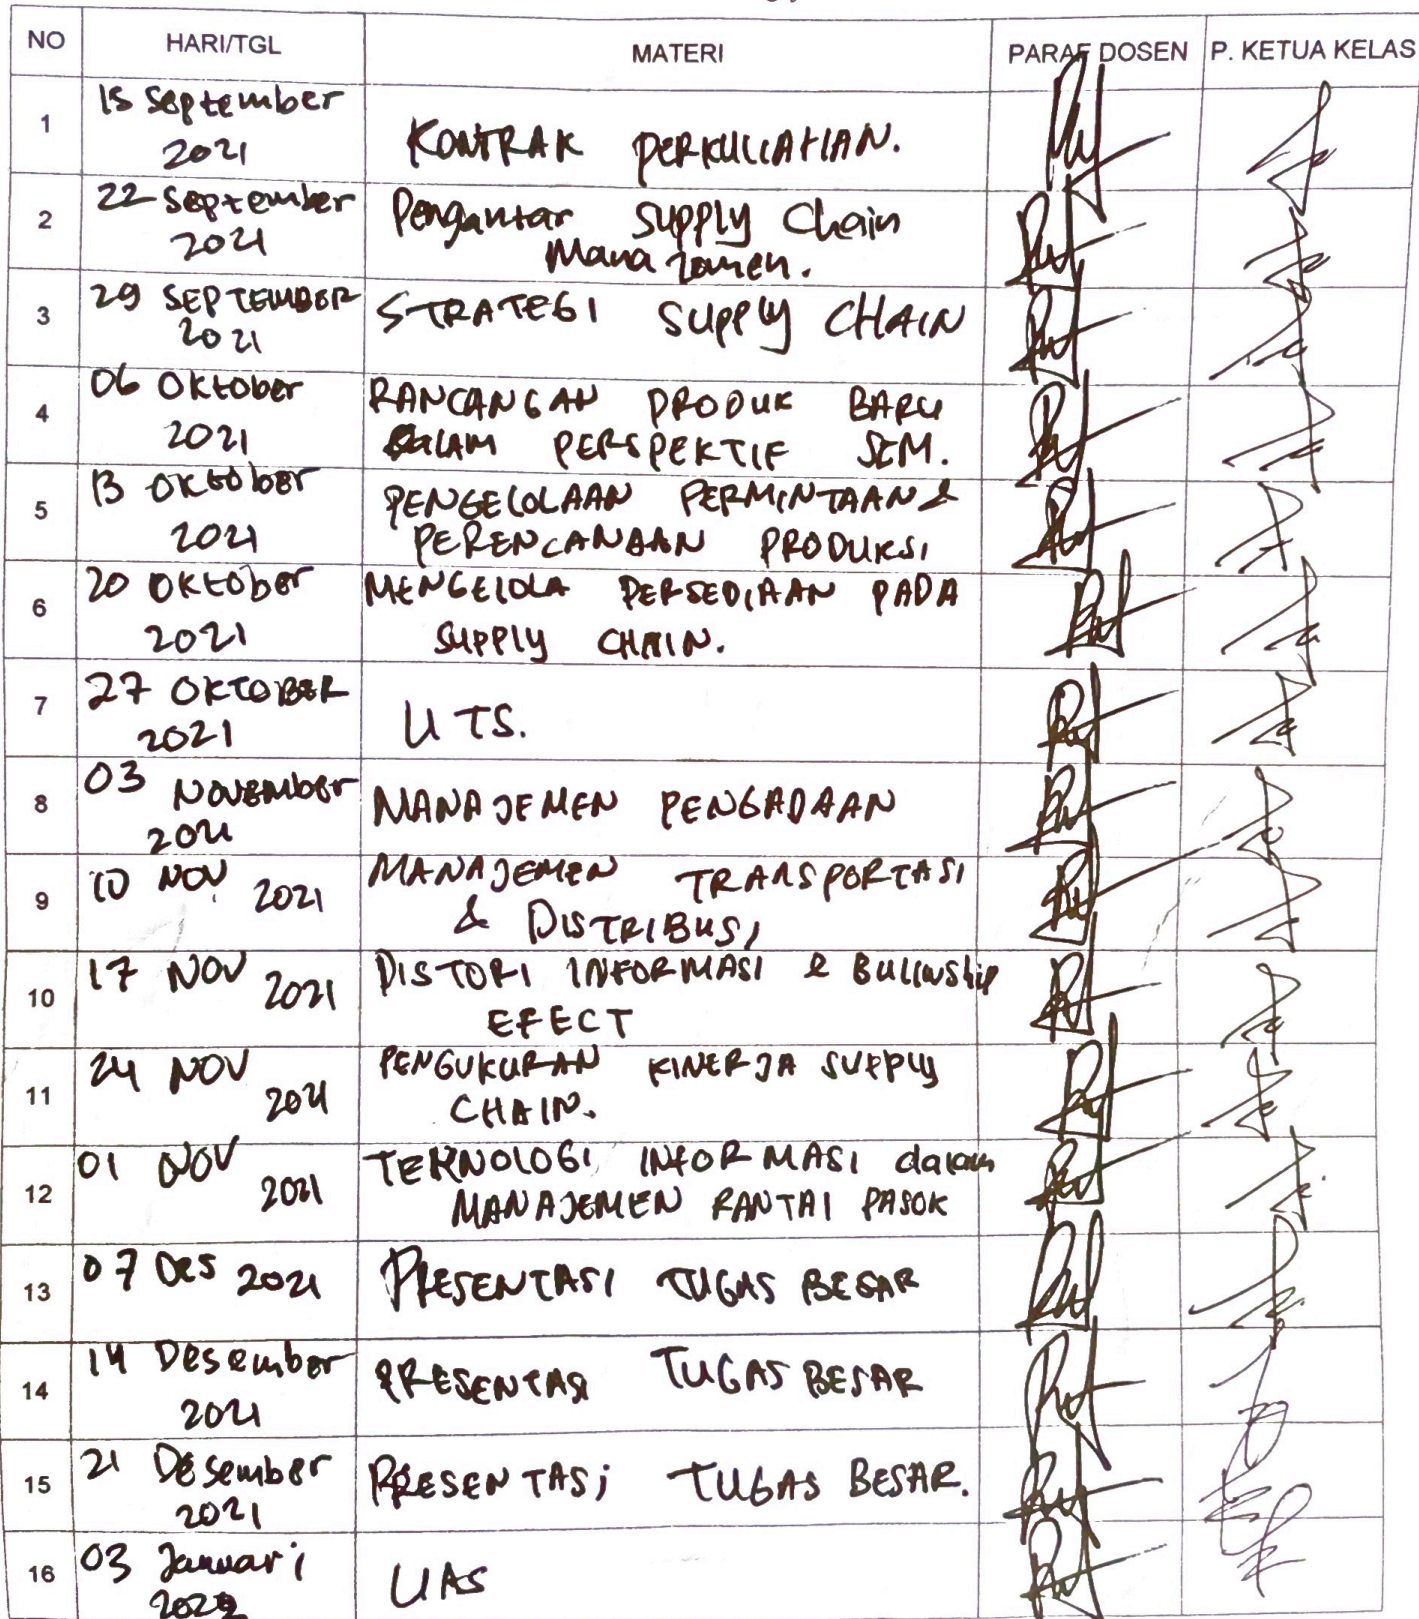 NO HARI/TGL MATERI PARAF DOSEN P. KETUA KELAS
1 15 September 2021 KONTRAK PERKULIAHAN.
2 22 September 2021 Pengantar Supply Chain
Manajemen.
3 29 SEPTEMBER 2021 STRATEGI SUPPLY CHAIN
4 06 Oktober 2021 RANCANGAN PRODUK BARU
DALAM PERSPEKTIF SCM.
5 13 Oktober 2021 PENGELOLAAN PERMINTAAN &
PERENCANAAN PRODUKSI
6 20 Oktober 2021 MENGELOLA PERSEDIAAN PADA
SUPPLY CHAIN.
7 27 OKTOBER 2021 UTS.
8 03 November 2021 MANAJEMEN PENGADAAN
9 10 NOV 2021 MANAJEMEN TRANSPORTASI
& DISTRIBUSI
10 17 NOV 2021 DISTORI INFORMASI & Bullwship
EFECT
11 24 NOV 2021 PENGUKURAN KINERJA SUPPLY
CHAIN.
12 01 NOV 2021 TEKNOLOGI INFORMASI dalam
MANAJEMEN RANTAI PASOK
13 07 Des 2021 PRESENTASI TUGAS BESAR
14 14 Desember 2021 PRESENTASI TUGAS BESAR
15 21 Desember 2021 PRESENTASI TUGAS BESAR.
16 03 Januari 2022 UAS